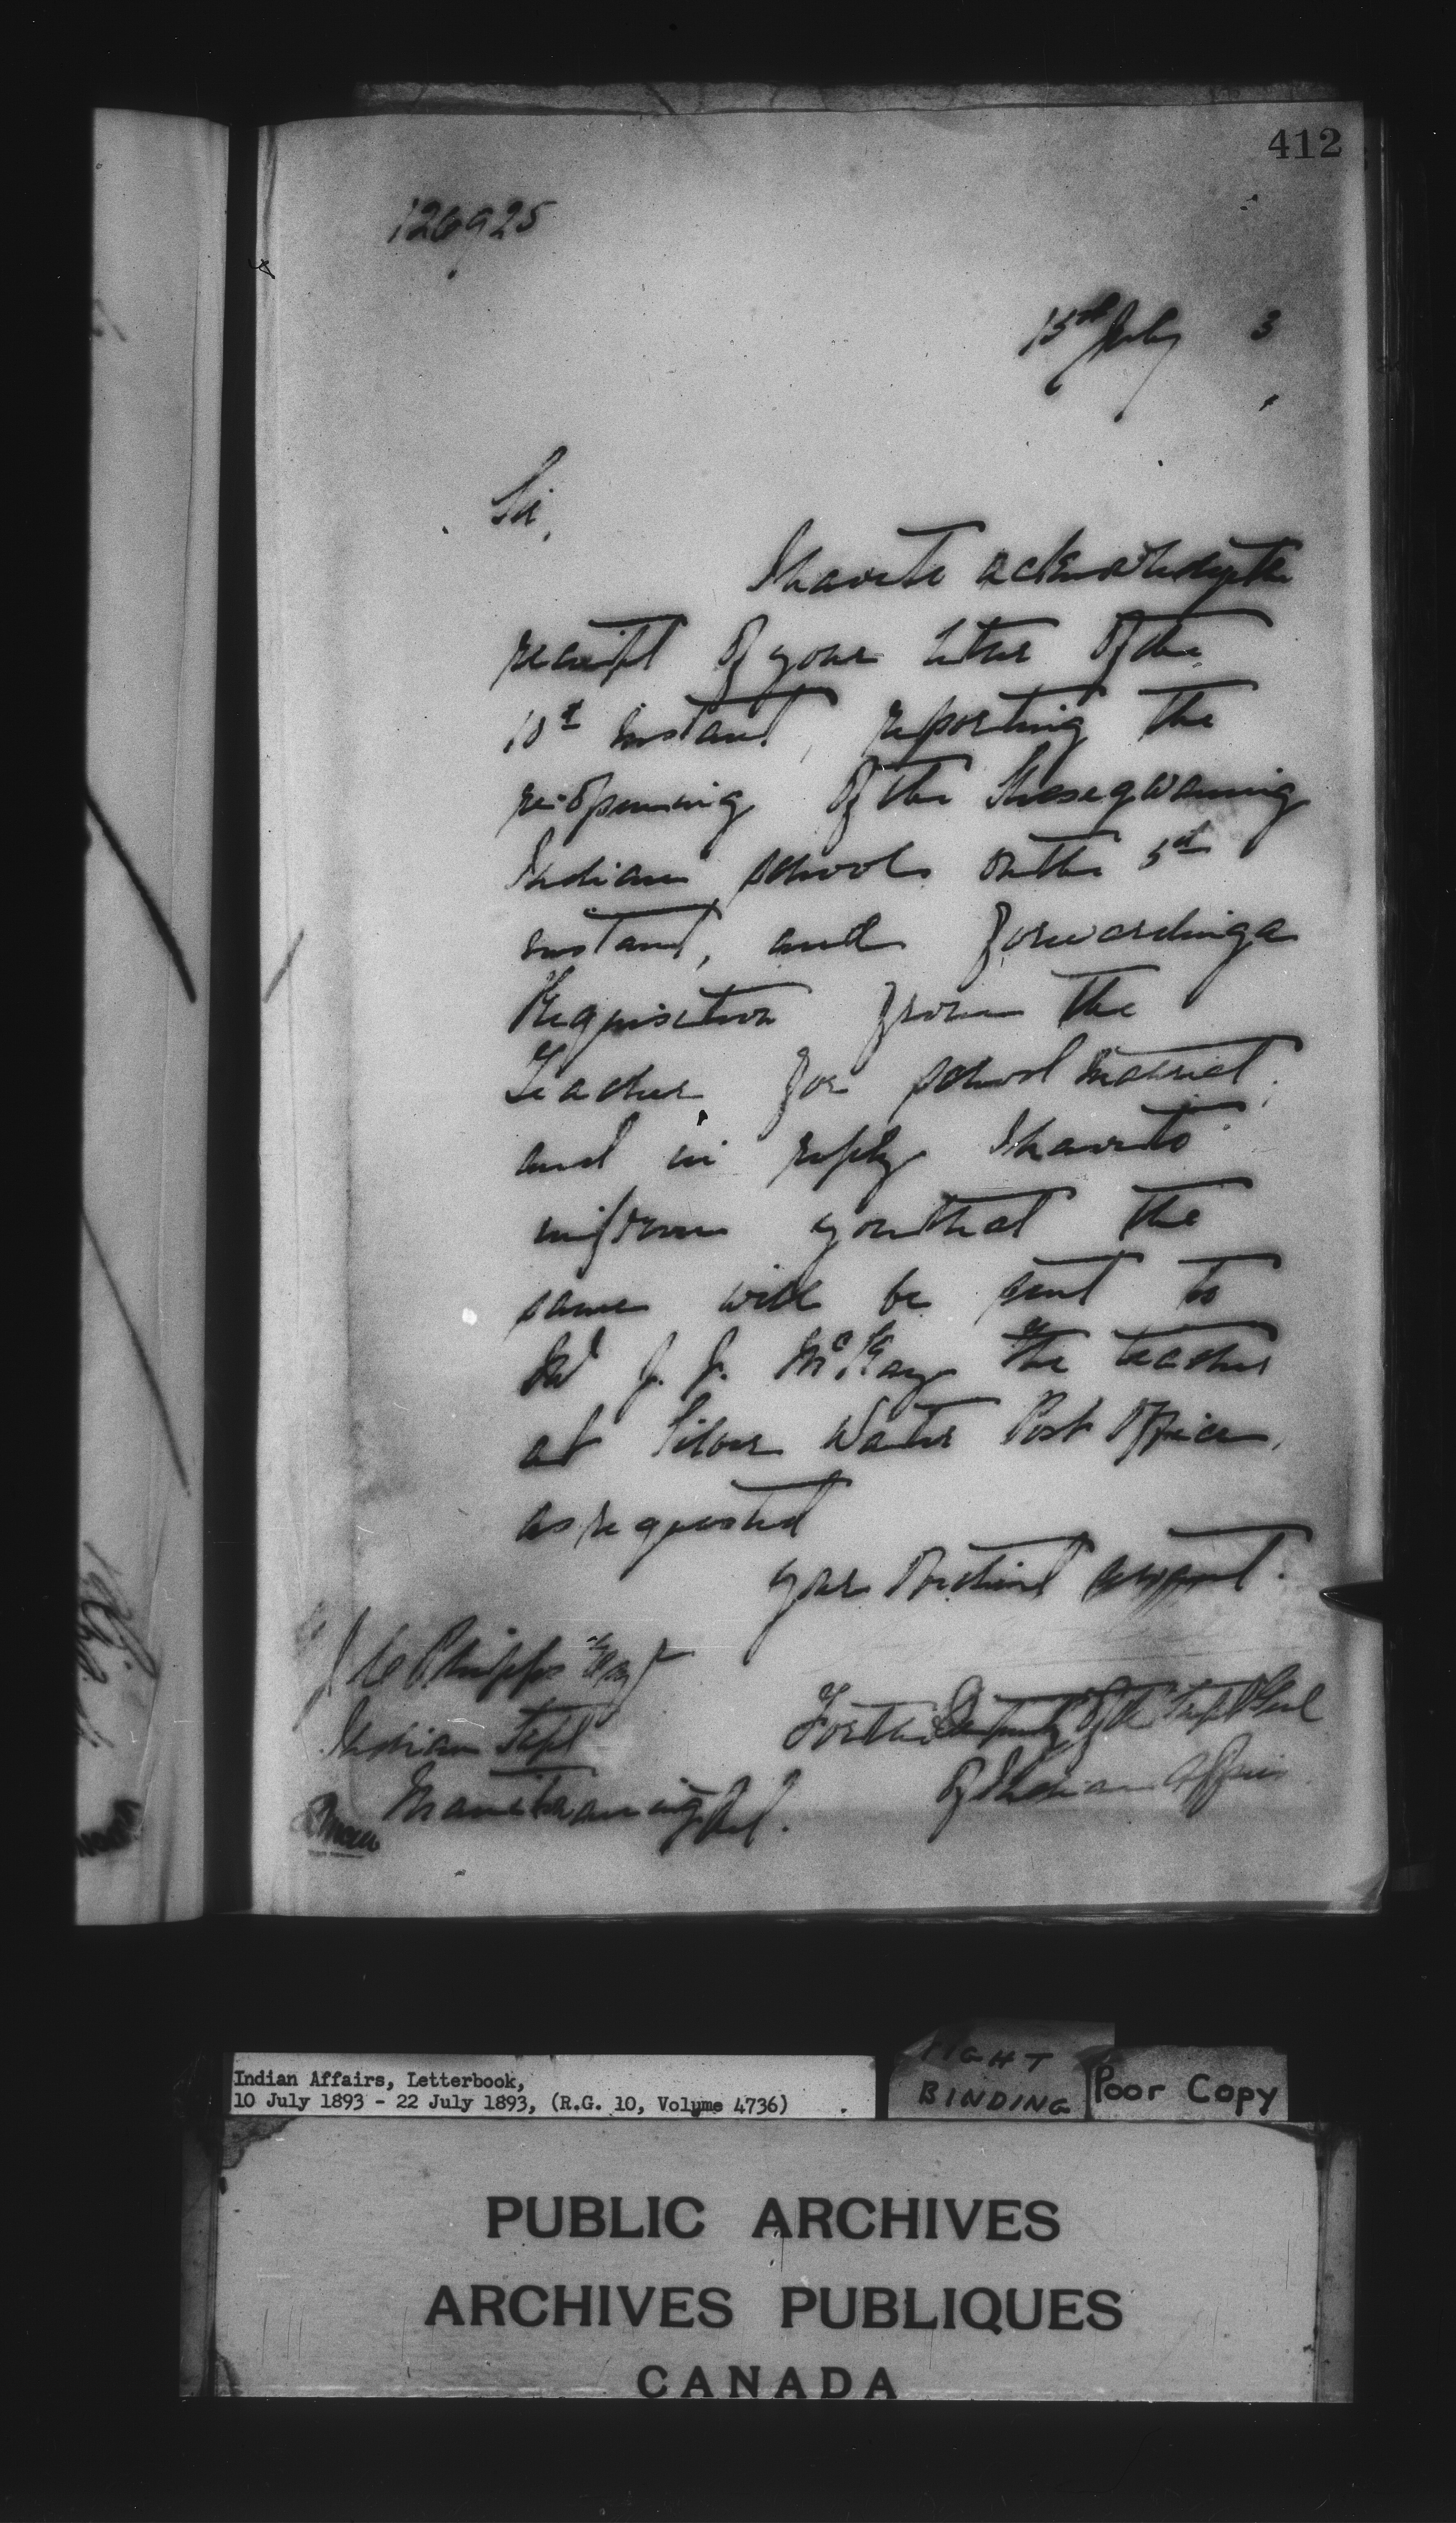 412
126925
15th July 3
Sir,
I have to acknowledge the
receipt of your letter of the
10th instant, reporting the
re-opening of the Shesegwaning
Indian school on the 5th
instant, and forwarding a
Requisition from the
Teacher for school material,
and in reply I have to
inform you that the
same will be sent to
Mr J. J. McKay the teacher
at Silver Water Post Office,
as requested
your obedient servant.
J C Phipps Esq
Indian Supt
Manitowaning Ont.
For the Deputy of the Supt Genl
of Indian Affairs
Indian Affairs, Letterbook,
10 July 1893 - 22 July 1893, (R.G. 10, Volume 4736)
TIGHT
BINDING
Poor Copy
PUBLIC ARCHIVES
ARCHIVES PUBLIQUES
CANADA